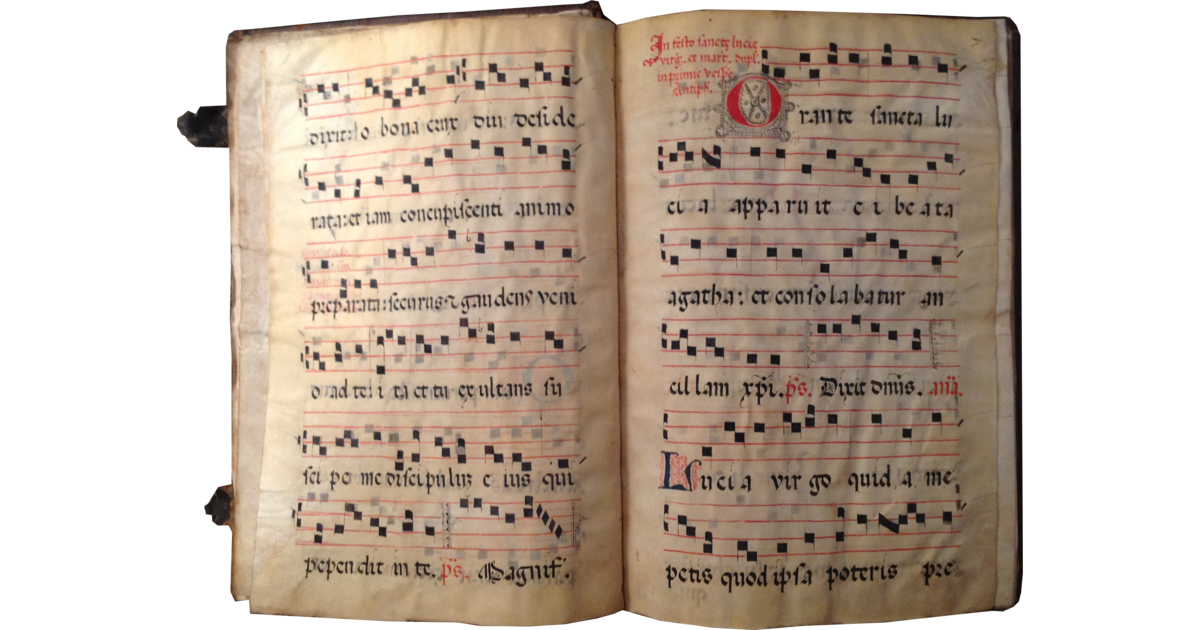 dixit: o bona crux diu deside
rata: et iam concupiscenti animo
preparata: securus & gaudens veni
o ad te: i ta et tu exultans su
sci pe me discipulum e ius qui
pependit in te. ps. Magnif.
In festo sancte lucie
virg. et mart. dupl.
in primis vesp.
antiph.
Orante sancta lu
ci a apparuit e i beata
agatha: et consolabatur an
cillam xpi. ps. Dixit dnus. ana.
Lucia virgo quid a me
petis quod ipsa poteris pre